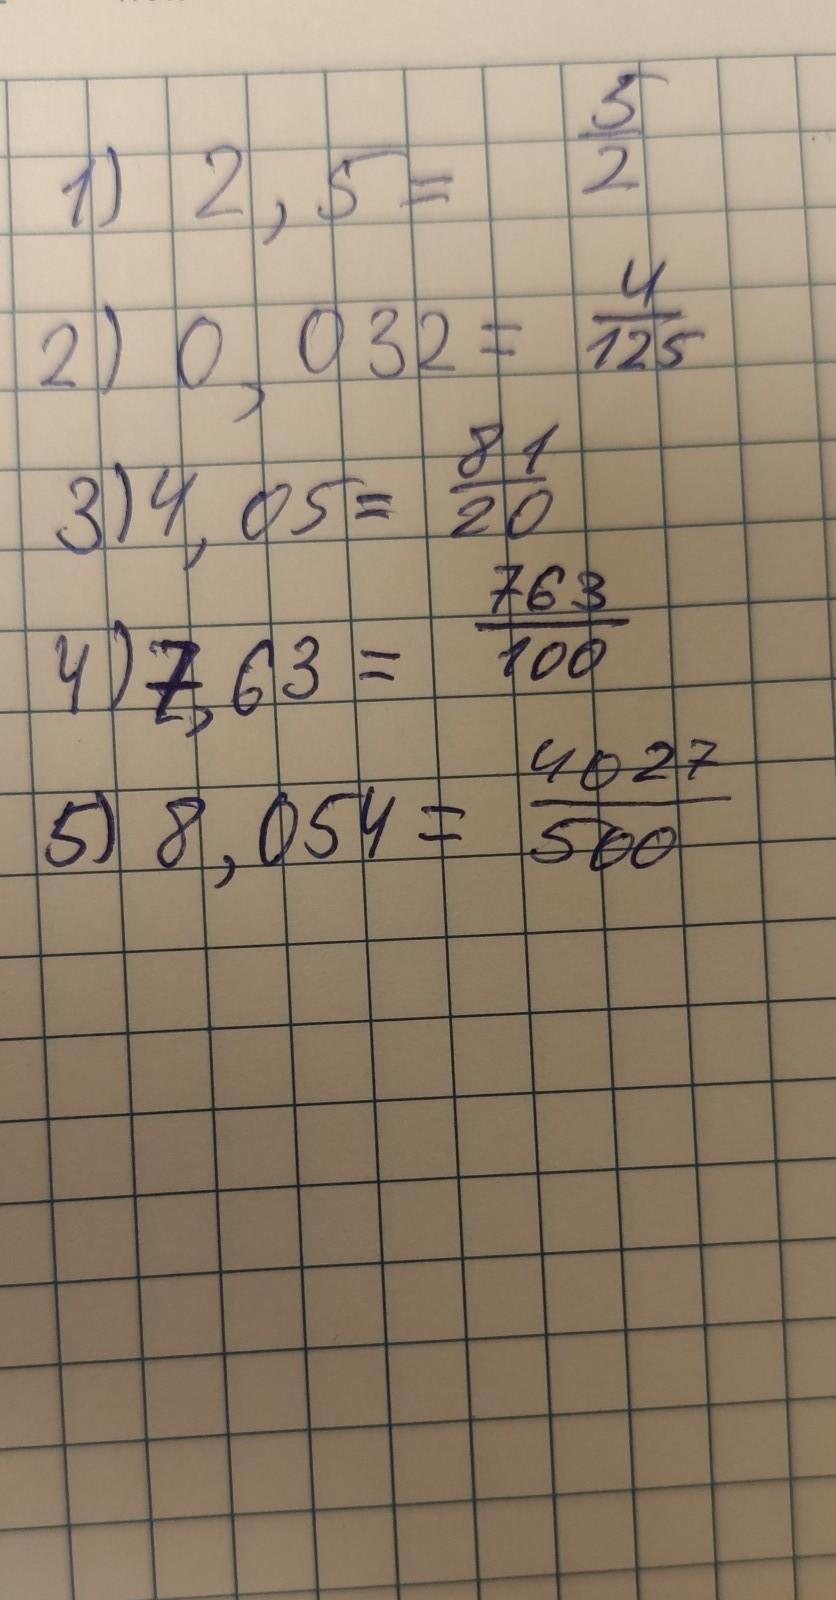 1) 2,5 = 5/2
2) 0,032 = 4/125
3) 4,05 = 81/20
4) 7,63 = 763/100
5) 8,054 = 4027/500